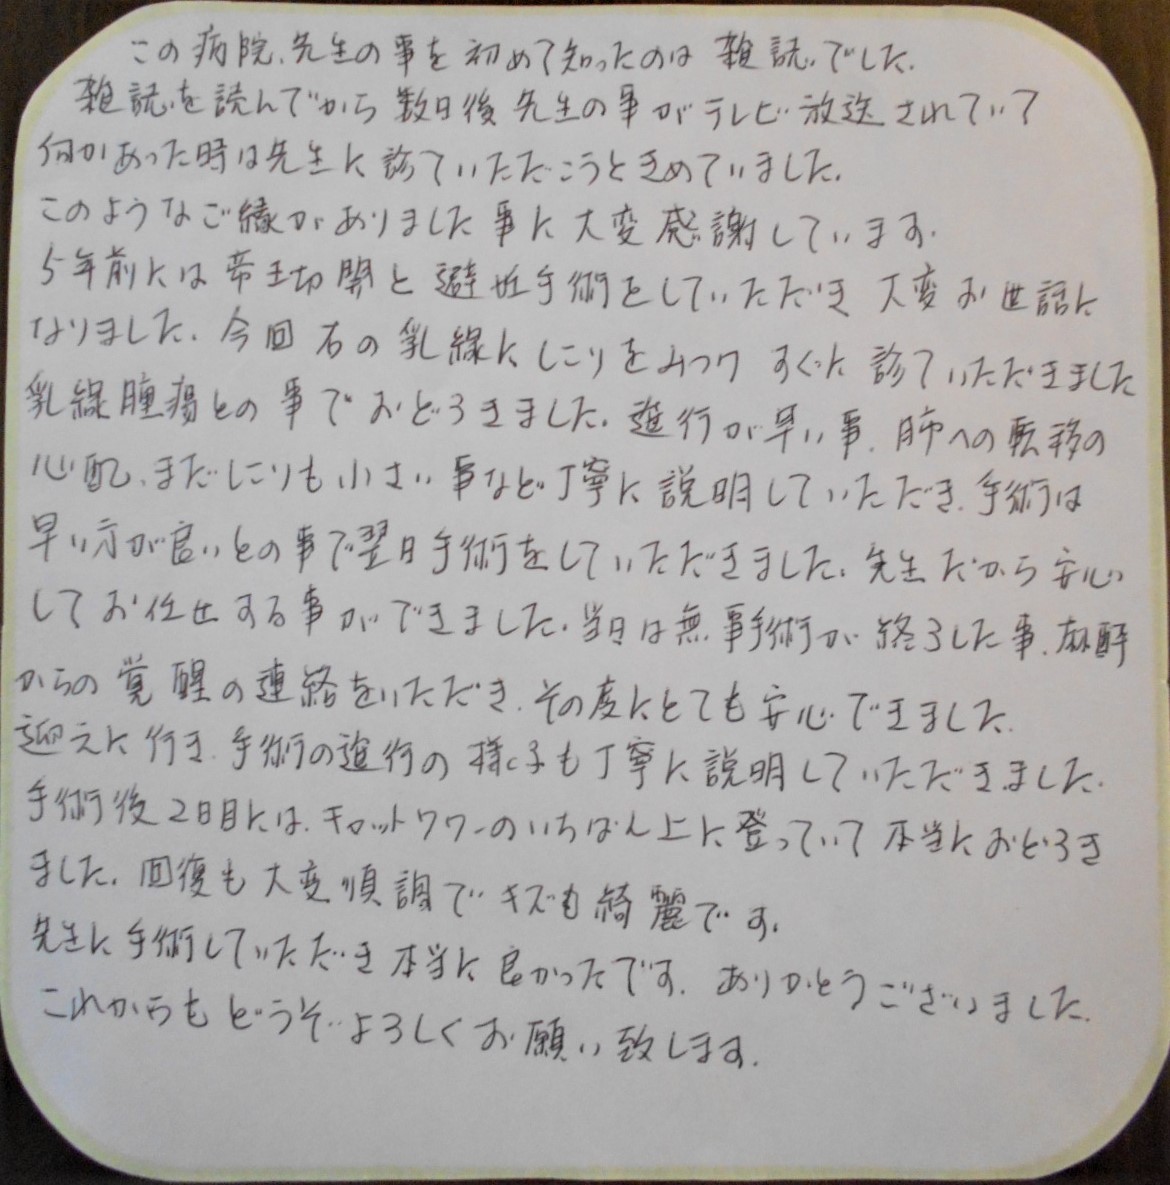 この病院、先生の事を初めて知ったのは雑誌でした。
雑誌を読んでから数日後先生の事がテレビ放送されていて
何かあった時は先生に診ていただこうときめていました。
このようなご縁がありました事に大変感謝しています。
5年前には帝王切開と避妊手術をしていただき大変お世話に
なりました。今回右の乳線にしこりをみつけすぐに診ていただきました
乳線腫瘍との事でおどろきました。進行が早い事、肺への転移の
心配、まだしこりも小さい事など丁寧に説明していただき、手術は
早い方が良いとの事で翌日手術をしていただきました。先生だから安心
してお任せする事ができました。当日は無事手術が終了した事、麻酔
からの覚醒の連絡をいただき、その度にとても安心できました。
迎えに行き、手術の進行の様子も丁寧に説明していただきました。
手術後2日目には、キャットタワーのいちばん上に登っていて本当におどろき
ました。回復も大変順調でキズも綺麗です。
先生に手術していただき本当に良かったです。ありがとうございました。
これからもどうぞよろしくお願い致します。